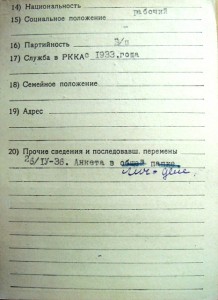 14) Национальность
15) Социальное положение рабочий
16) Партийность Б/п
17) Служба в РККА с 1933 года
18) Семейное положение
19) Адрес
20) Прочие сведения и последовавш. перемены
25/IУ-36. Анкета в общей папке
лич. деле.